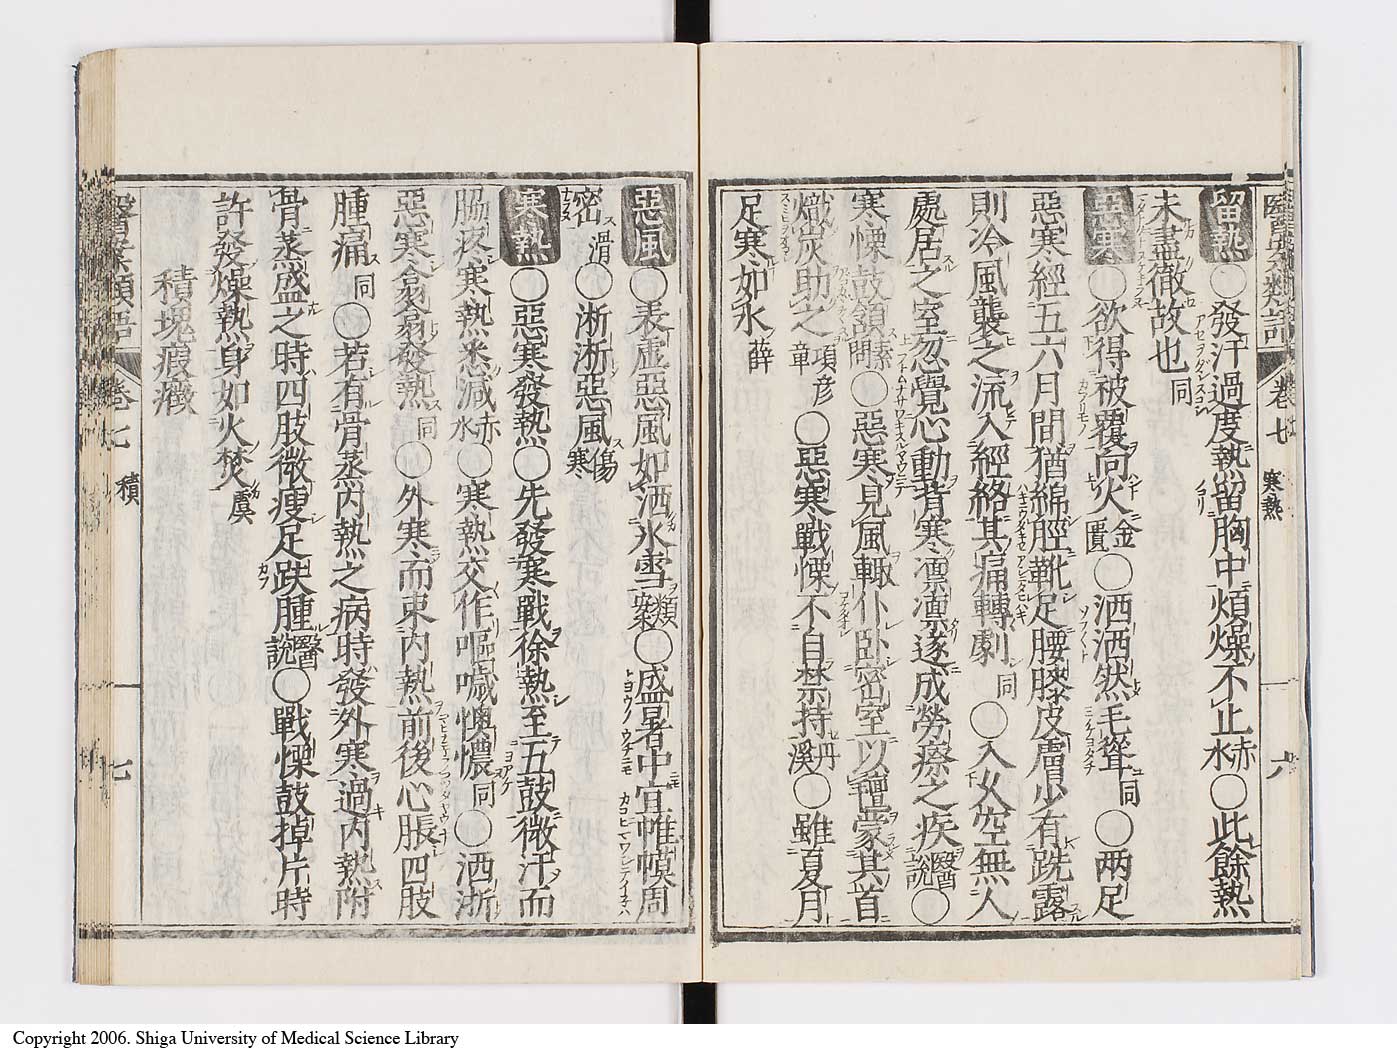 留熱○發汗過度熱留胸中煩燥不止赤水○此餘熱
未盡徹故也同
惡寒○欲得被覆向火金匱○洒洒然毛聳同○兩足
惡寒經五六月間猶綿脛靴足腰膝皮膚少有跣露
則冷風襲之流入經絡其痛轉劇同○入女空無人
處居之室忽覺心動背寒凛凛遂成勞瘵之疾醫說○
寒慄鼓頷素問○惡寒見風輙仆卧密室以氊蒙其首
熾炭助之項彦章○惡寒戰慄不自禁持丹溪○雖夏月
足寒如氷薛
醫案類語 卷七 寒熱 六
惡風○表虛惡風如洒氷雪類案○盛暑中宜帷幙周
密滑○淅淅惡風傷寒
寒熱○惡寒發熱○先發寒戰徐熱至五鼓微汗而
脇疼寒熱悉減赤水○寒熱交作嘔噦懊憹同○洒淅
惡寒翕翕發熱同○外寒而束內熱前後心脹四肢
腫痛同○若有骨蒸內熱之病時發外寒寒過內熱附
骨蒸盛之時四肢微瘦足趺腫醫說○戰慄鼓掉片時
許發燥熱身如火焚虞
積塊瘕癥
醫案類語 卷七 積 七
Copyright 2006. Shiga University of Medical Science Library